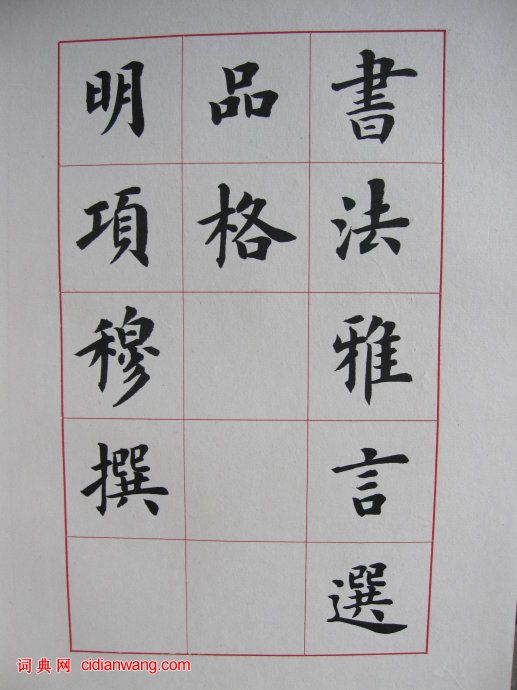 書法雅言選
品格
明項穆撰
词典网 cidianwang.com